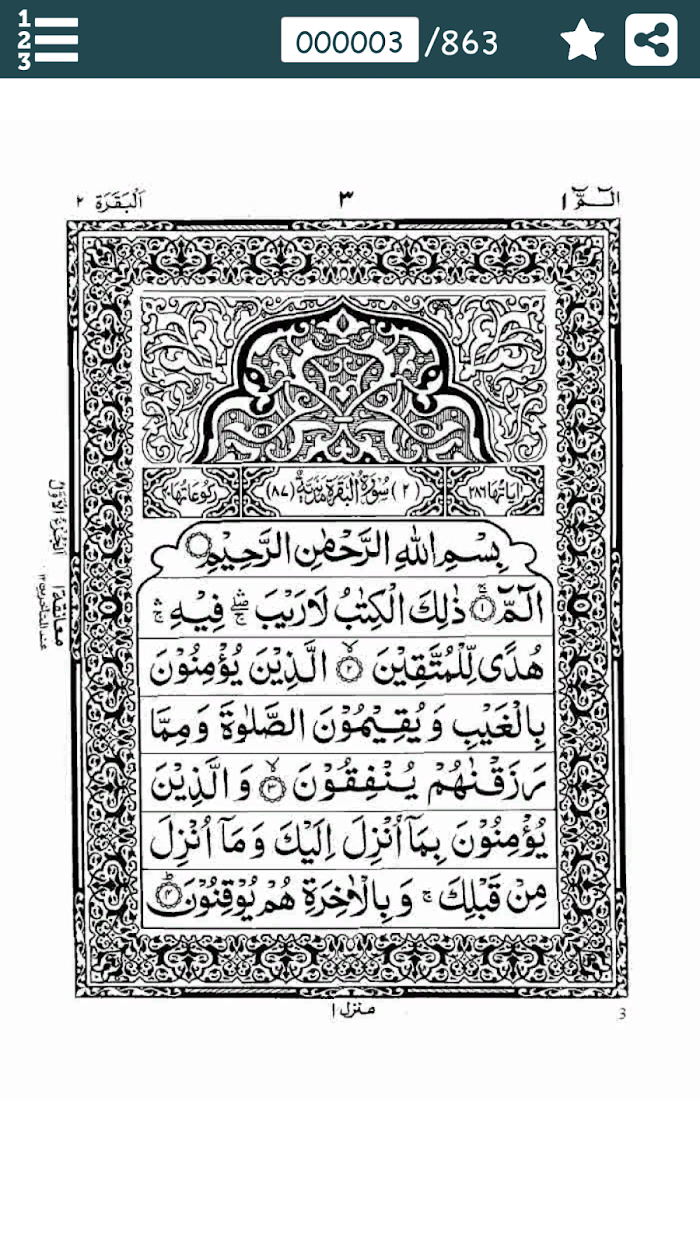 1
2
3
000003 /863
الٓـمّٓ ١
٣
اَلْبَقَرَة ٢
اٰیَاتُهَا ٢٨٦
(٢) سُوْرَةُ الْبَقَرَةِ مَدَنِیَّةٌ (٨٧)
رُكُوْعَاتُهَا ٤٠
بِسْمِ اللهِ الرَّحْمٰنِ الرَّحِیْمِ
الٓمّٓ ۚ ١ ذٰلِكَ الْكِتٰبُ لَا رَیْبَ ۛۖۚ فِیْهِ ۛۚ
هُدًی لِّلْمُتَّقِیْنَ ۙ ٢ الَّذِیْنَ یُؤْمِنُوْنَ
بِالْغَیْبِ وَیُقِیْمُوْنَ الصَّلٰوةَ وَمِمَّا
رَزَقْنٰهُمْ یُنْفِقُوْنَ ۙ ٣ وَالَّذِیْنَ
یُؤْمِنُوْنَ بِمَاۤ اُنْزِلَ اِلَیْكَ وَمَاۤ اُنْزِلَ
مِنْ قَبْلِكَ ۚ وَبِالْاٰخِرَةِ هُمْ یُوْقِنُوْنَ ؕ ٤
اَلْجُزْءُ الْاَوَّلُ
معانقة ١
عند المتاخرین ١٢
منزل ١
3